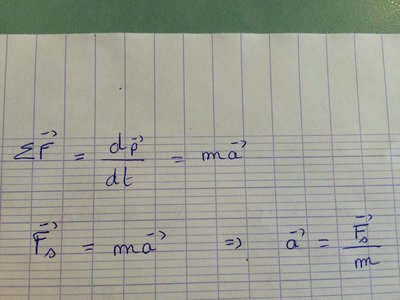 ΣF⃗ = dp⃗/dt = ma⃗
F⃗s = ma⃗ ⇒ a⃗ = F⃗s/m